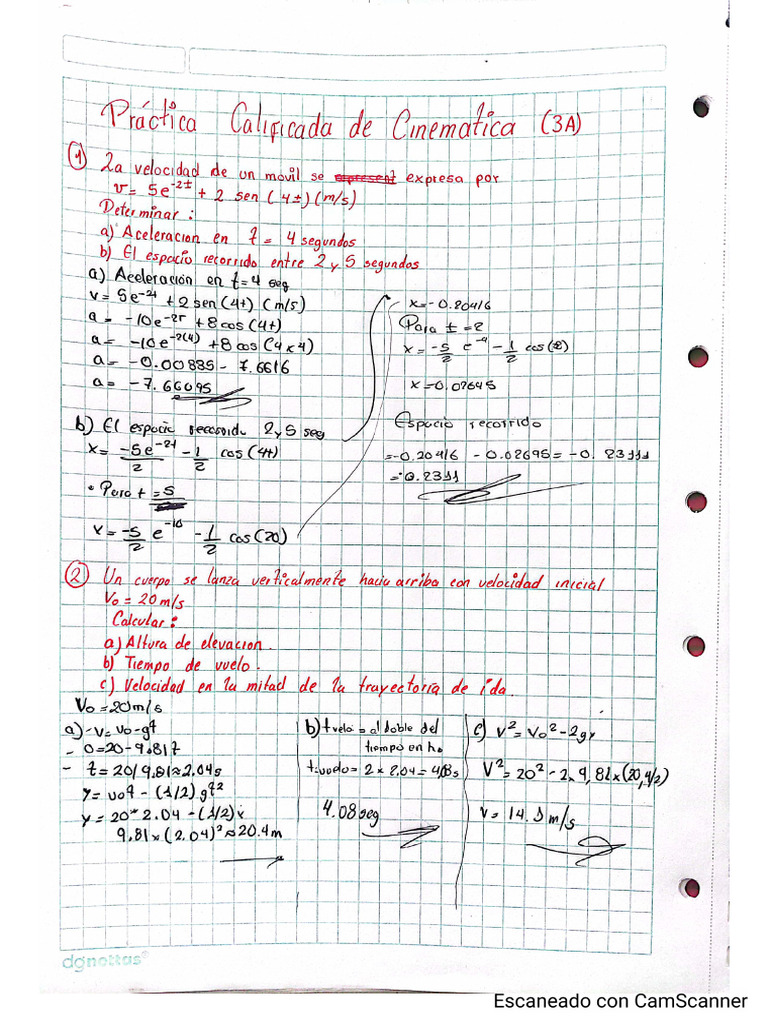 Práctica Calificada de Cinematica (3A)
① La velocidad de un movil se expresa por
v = 5e^-2t + 2 sen (4t) (m/s)
Determinar :
a) Aceleracion en t = 4 segundos
b) El espacio recorrido entre 2 y 5 segundos
a) Aceleración en t=4 seg
v = 5e^-2t + 2 sen (4t) (m/s)
a = -10e^-2t + 8 cos (4t)
a = -10e^-2(4) + 8 cos (4x4)
a = -0.00335 - 7.6616
a = -7.66095
b) El espacio recorrido 2 y 5 seg
x = -5e^-2t/2 - 1/2 cos (4t)
• Para t = 5
x = -5/2 e^-10 - 1/2 cos (20)
x = -0.20416
Para t = 2
x = -5/2 e^-4 - 1/2 cos (8)
x = 0.02695
Espacio recorrido
= -0.20416 - 0.02695 = -0.23111
= 0.2311
② Un cuerpo se lanza verticalmente hacia arriba con velocidad inicial
Vo = 20 m/s
Calcular :
a) Altura de elevacion.
b) Tiempo de vuelo.
c) Velocidad en la mitad de la trayectoria de ida.
Vo = 20m/s
a) -v = vo - gt
- 0 = 20 - 9.81t
- t = 20/9.81 ≈ 2.04s
y = vot - (1/2) gt²
y = 20* 2.04 - (1/2)x
9.81 x (2.04)² ≈ 20.4 m
b) t velo = al doble del
tiempo en h.
t vuelo = 2 x 2.04 = 4.08 s
4.08 seg
c) V² = Vo² - 2gy
V² = 20² - 2x 9,81x (20,4/2)
v = 14.1 m/s
dgnottas
Escaneado con CamScanner